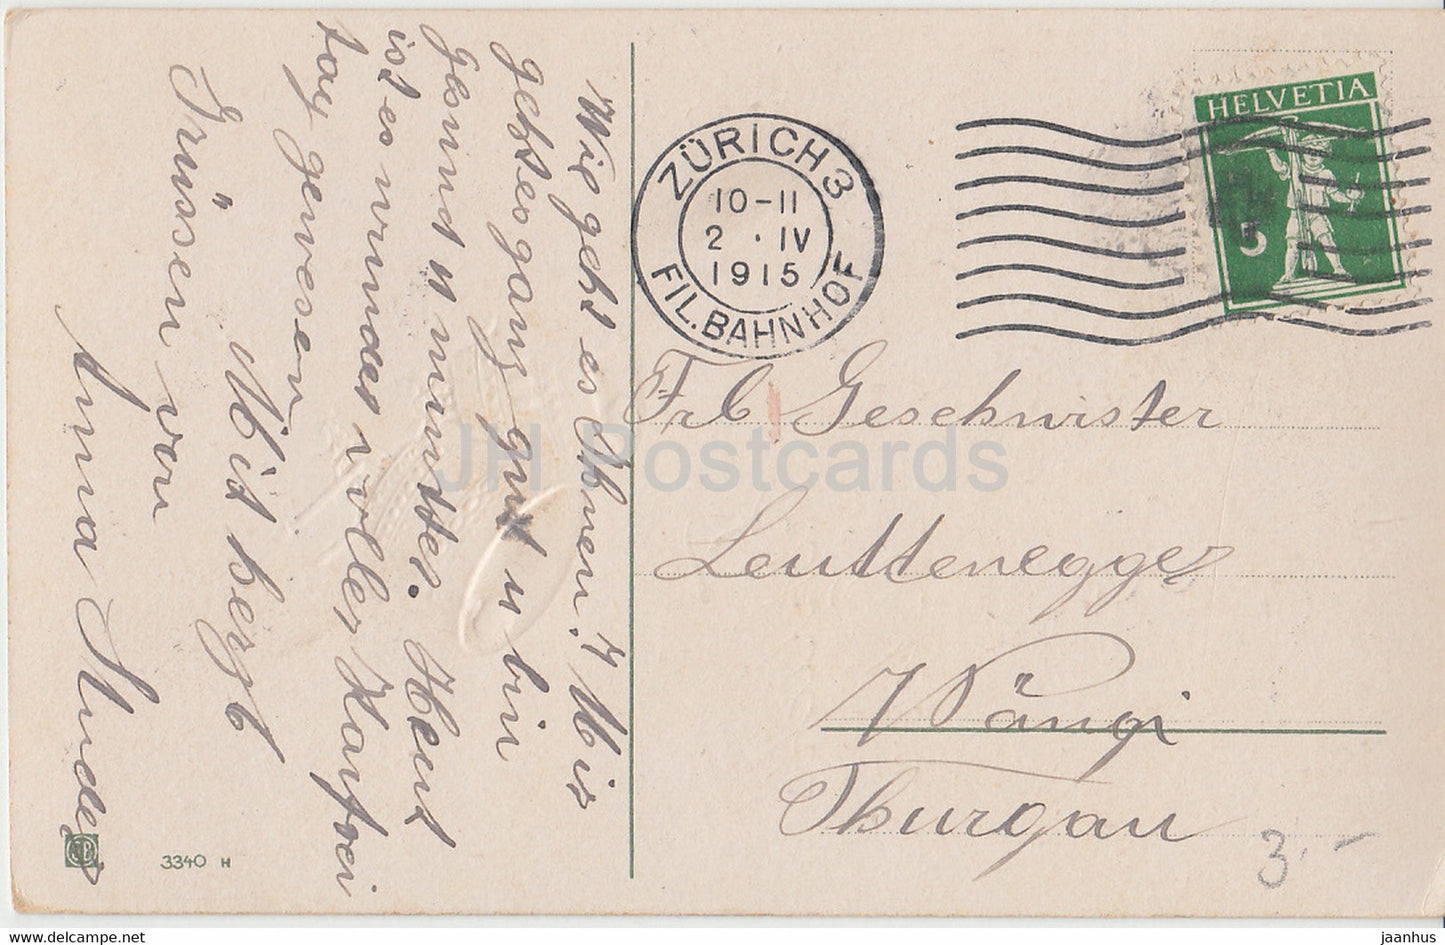 Wie geht es Ihnen? Mir
geht es ganz gut u bin
gesund u munter. Heut
ist es wunder voller Karfrei
tag gewesen
Mit herzl
Grüssen von
Anna
3340 H
ZÜRICH 3
10-11
2 . IV
1915
FIL. BAHNHOF
HELVETIA
5
Frl Geschwister
Leuttenegger
Wängi
Thurgau
3.-
JH Postcards
jaanhus
www.delcampe.net